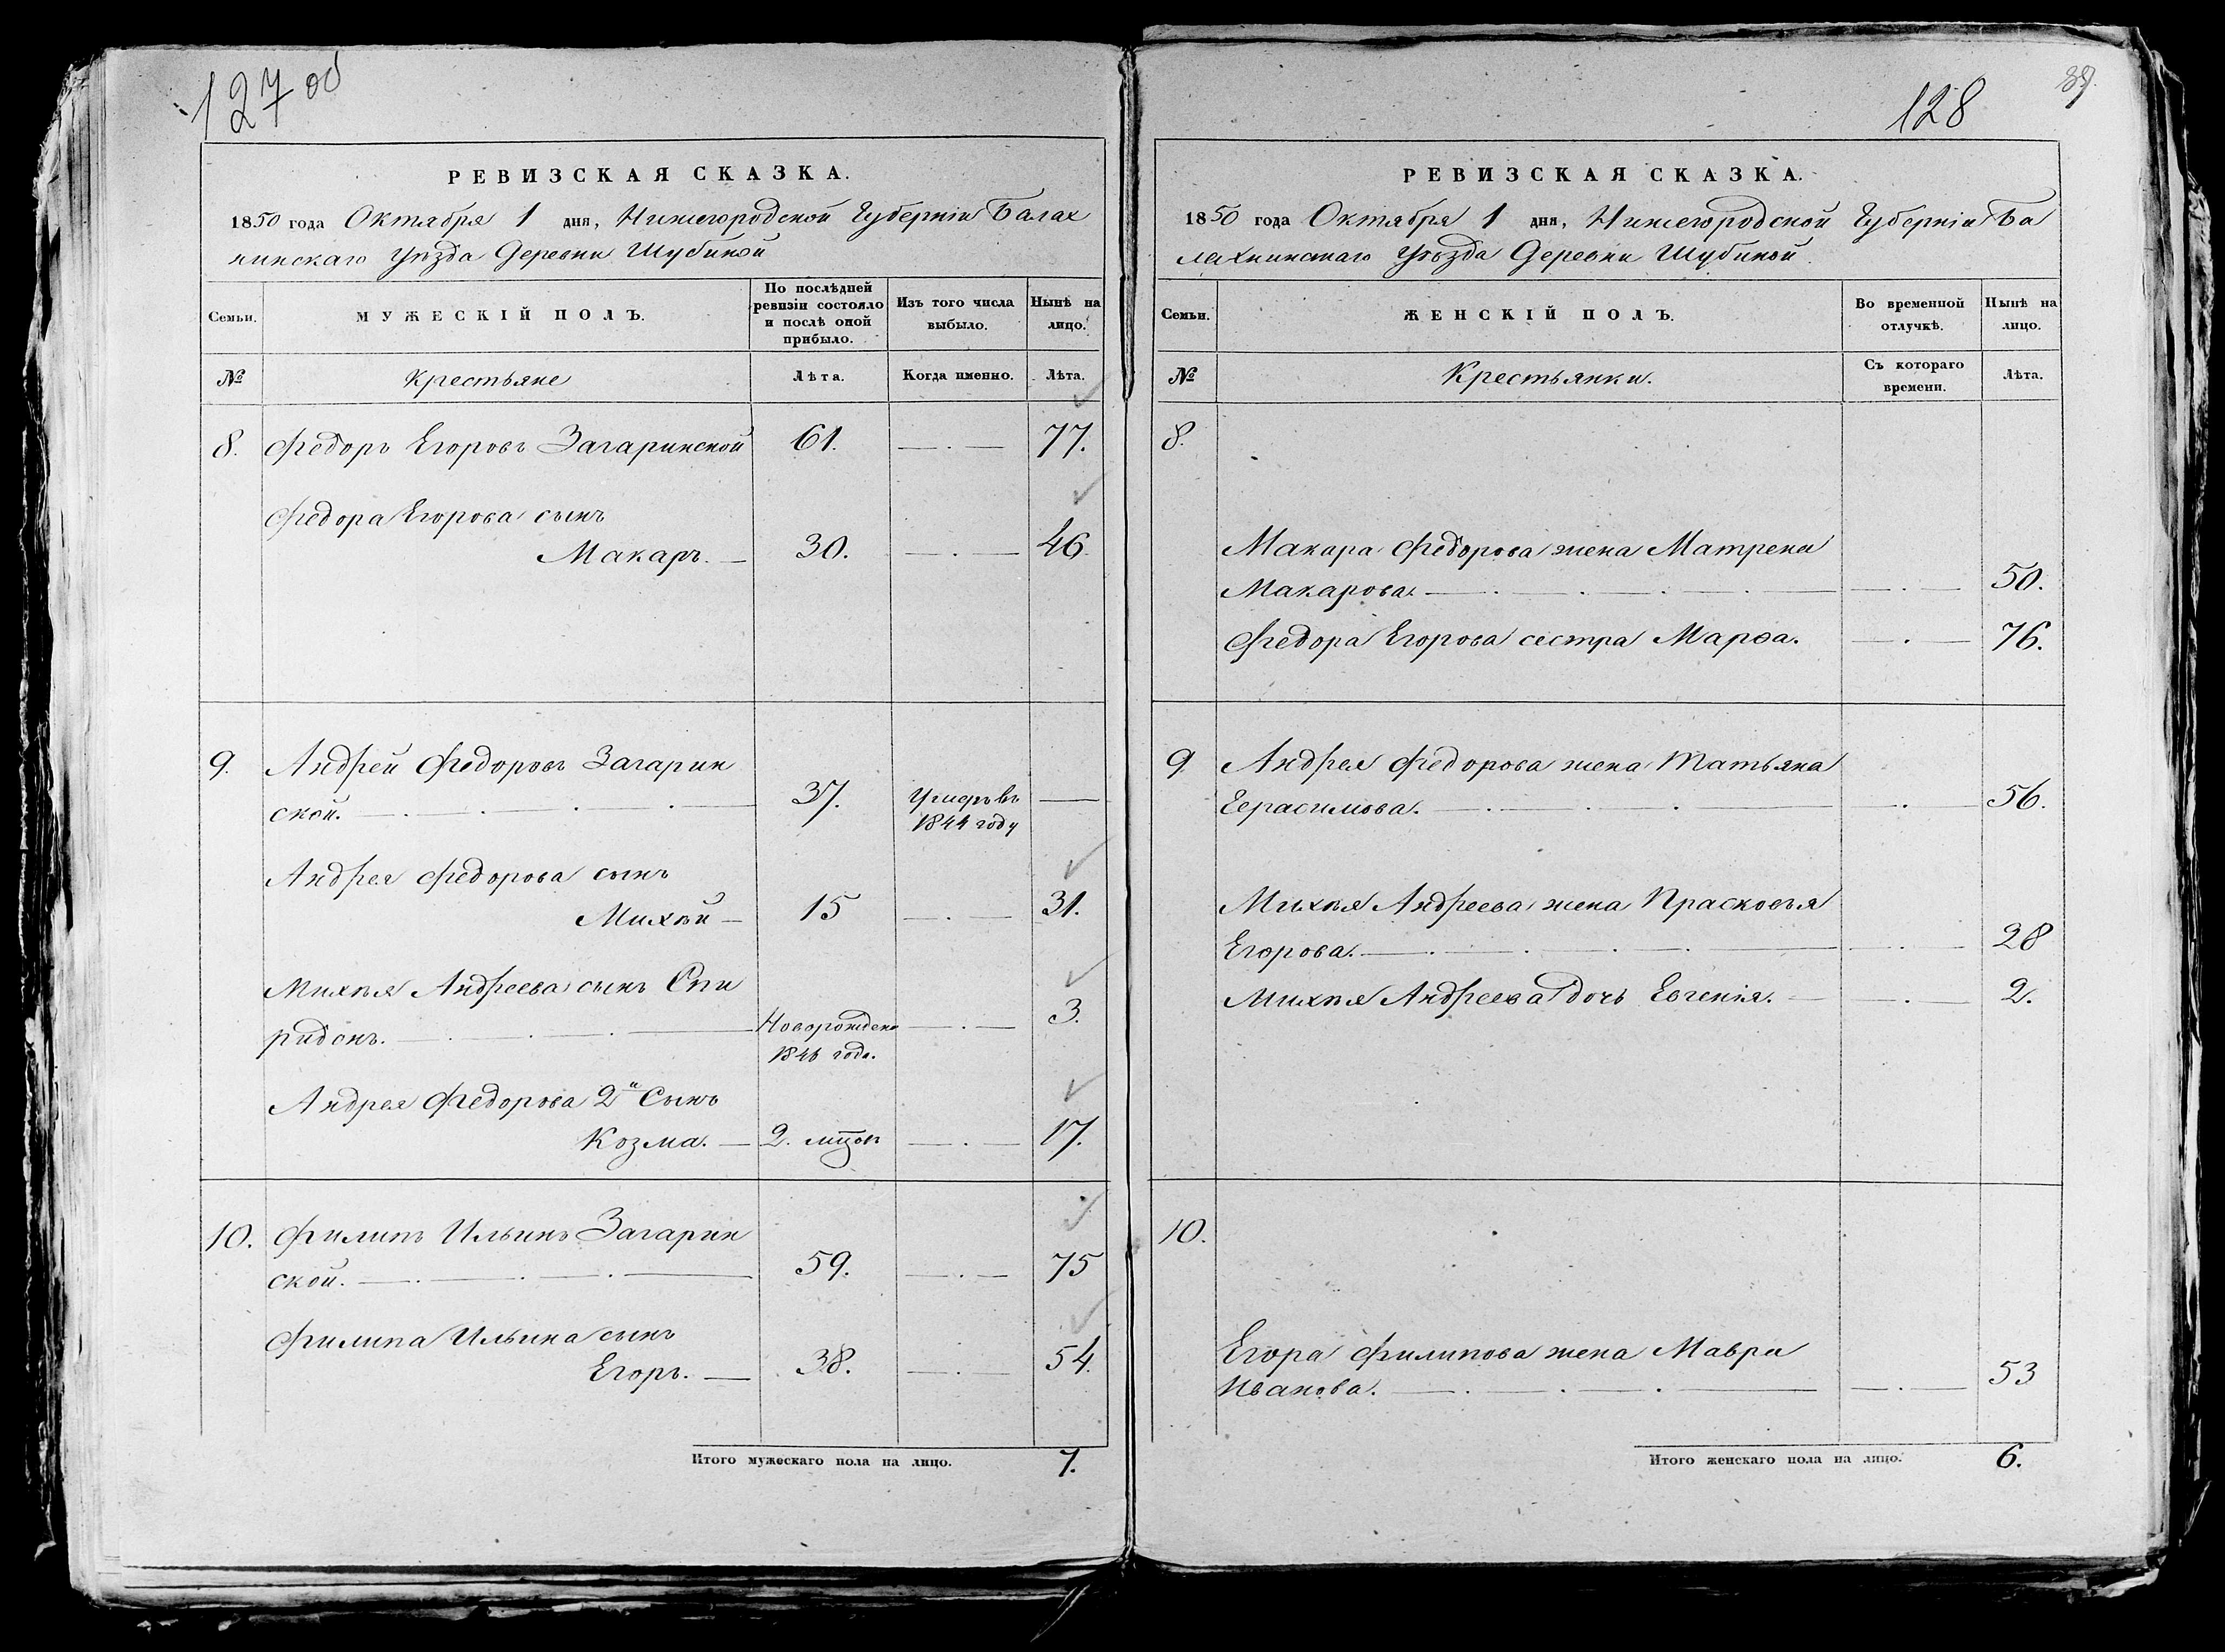 127 об
РЕВИЗСКАЯ СКАЗКА.
1850 года Октября 1 дня, Нижегородской Губерніи Балах
нинскаго Уѣзда Деревни Шубиной
Семьи.
МУЖЕСКІЙ ПОЛЪ.
По послѣдней
ревизіи состояло
и послѣ оной
прибыло.
Изъ того числа
выбыло.
Нынѣ на
лицо.
№
Крестьяне
Лѣта.
Когда именно.
Лѣта.
8. Федоръ Егоровъ Загаринской 61. 77.
Федора Егорова сынъ
Макаръ. 30. 46
9. Андрей Федоровъ Загарин
ской. 37. Умеръ въ
1844 году
Андрея Федорова сынъ
Михѣй 15 31.
Михѣя Андреева сынъ Спи
ридонъ. Новорожден 3.
184 года.
Андрея Федорова 2й Сынъ
Козма. 2. мцов 17.
10. Филипъ Ильинъ Загарин
ской. 59. 75
Филипа Ильина сынъ
Егоръ. 38. 54.
Итого мужескаго пола на лицо. 7.
89.
128
РЕВИЗСКАЯ СКАЗКА.
1850 года Октября 1 дня, Нижегородской Губерніи Ба
лахнинскаго Уѣзда Деревни Шубиной.
Семьи.
ЖЕНСКІЙ ПОЛЪ.
Во временной
отлучкѣ.
Нынѣ на
лицо.
№
Крестьянки.
Съ котораго
времени.
Лѣта.
8.
Макара Федорова жена Матрена
Макарова. 50.
Федора Егорова сестра Марѳа. 76.
9 Андрея Федорова жена Татьяна
Герасимова. 56.
Михѣя Андреева жена Прасковья
Егорова. 28
Михѣя Андреева дочь Евгенія. 2.
10.
Егора Филипова жена Мавра
Иванова. 53
Итого женскаго пола на лицо. 6.